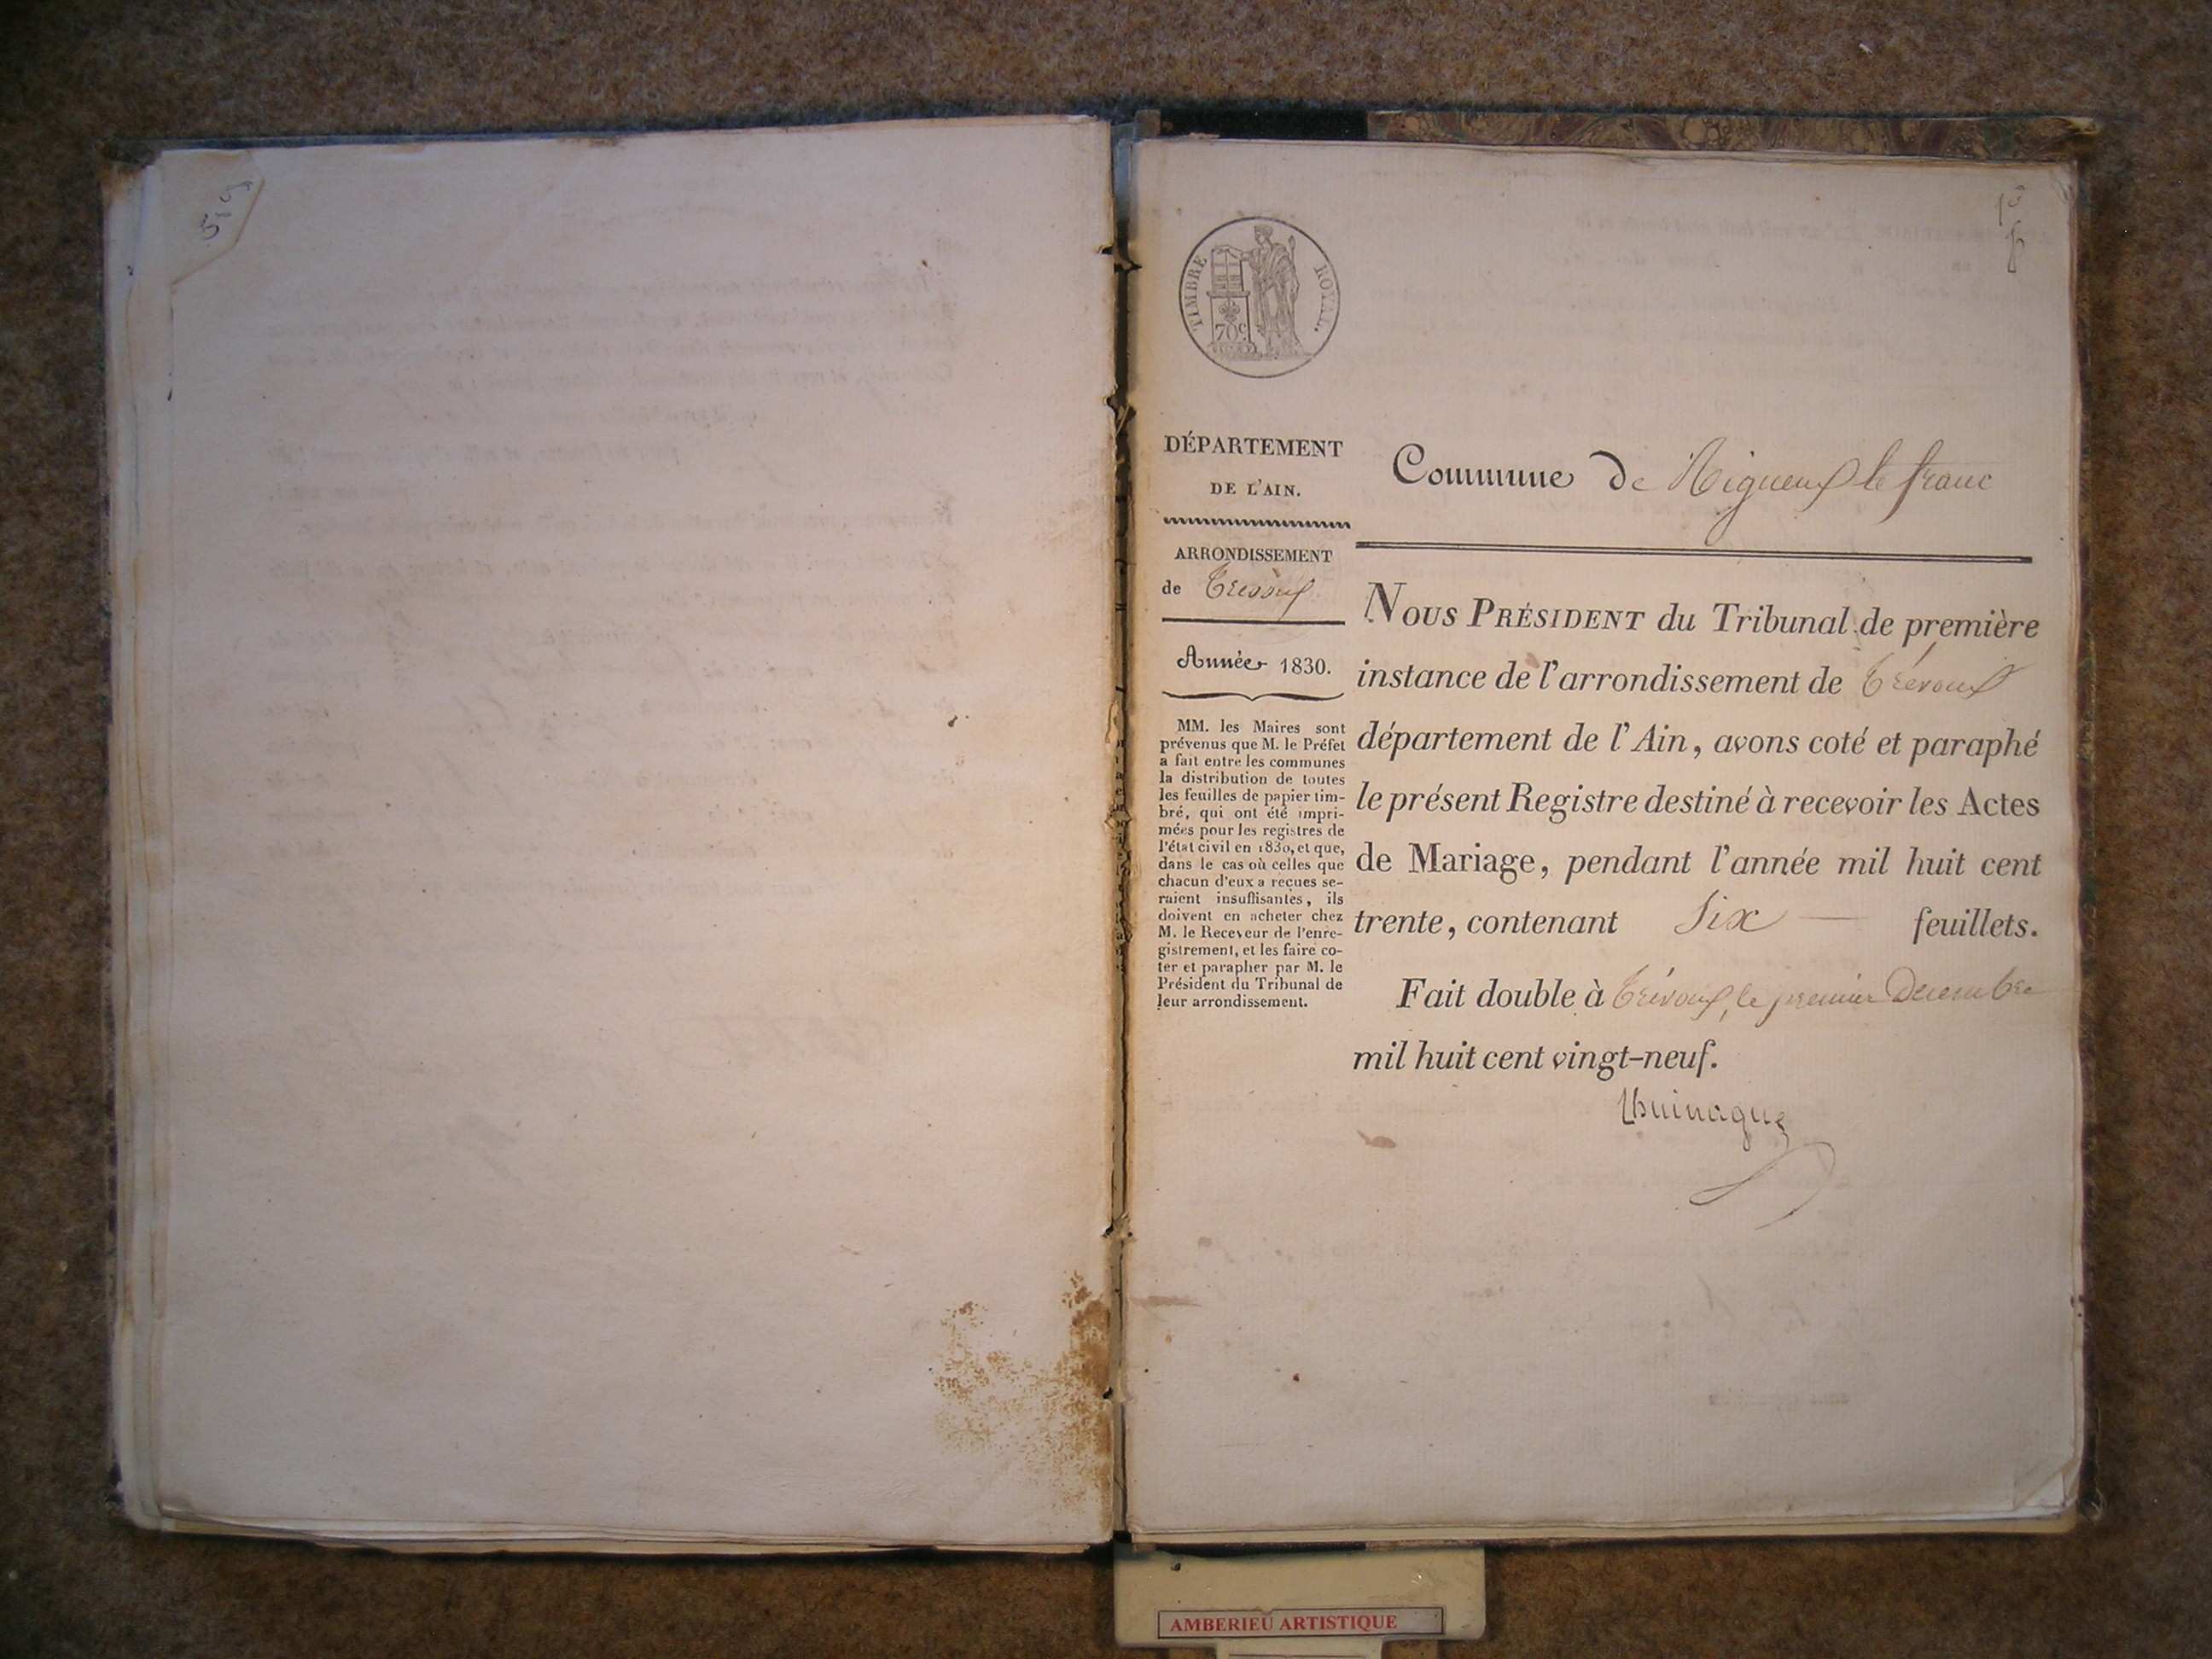 TIMBRE ROYAL.
70c
DÉPARTEMENT
DE L'AIN.
Commune de Rigneux le franc
ARRONDISSEMENT
de Trévoux
Année 1830.
MM. les Maires sont
prévenus que M. le Préfet
a fait entre les communes
la distribution de toutes
les feuilles de papier tim-
bré, qui ont été impri-
mées pour les registres de
l'état civil en 1830, et que,
dans le cas où celles que
chacun d'eux a reçues se-
raient insuffisantes, ils
doivent en acheter chez
M. le Receveur de l'enre-
gistrement, et les faire co-
ter et parapher par M. le
Président du Tribunal de
leur arrondissement.
NOUS PRÉSIDENT du Tribunal de première
instance de l'arrondissement de Trévoux
département de l'Ain, avons coté et paraphé
le présent Registre destiné à recevoir les Actes
de Mariage, pendant l'année mil huit cent
trente, contenant Six — feuillets.
Fait double à Trévoux, le premier Decembre
mil huit cent vingt-neuf.
AMBERIEU ARTISTIQUE